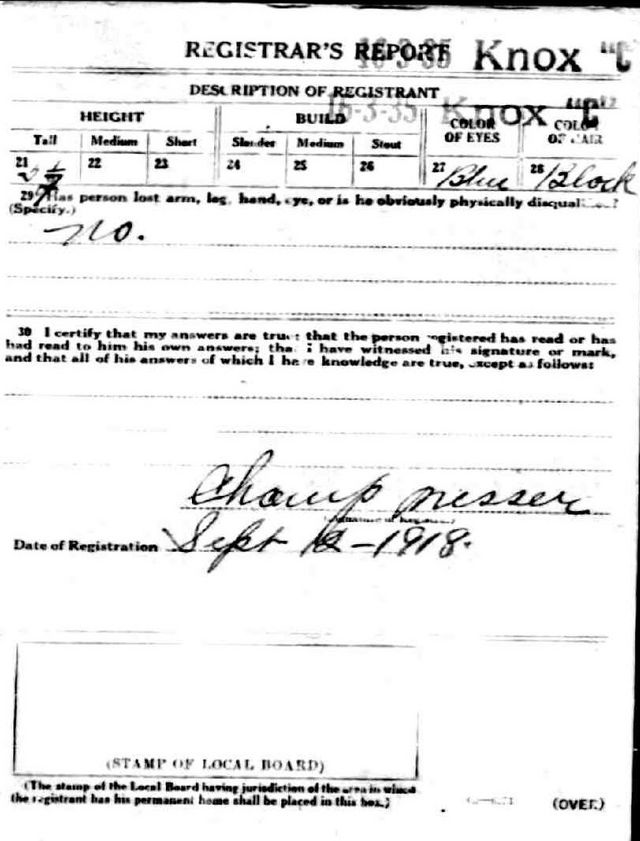 REGISTRAR'S REPORT 16-3-35 Knox "C"
DESCRIPTION OF REGISTRANT
16-3-35 Knox "C"
HEIGHT BUILD COLOR OF EYES COLOR OF HAIR
Tall Medium Short Slender Medium Stout
21 22 23 24 25 26 27 Blue 28 Black
29 Has person lost arm, leg, hand, eye, or is he obviously physically disqualified?
(Specify.)
no.
30 I certify that my answers are true; that the person registered has read or has
had read to him his own answers; that I have witnessed his signature or mark,
and that all of his answers of which I have knowledge are true, except as follows:
Champ Messer
(Signature of Registrar)
Date of Registration Sept 12-1918.
(STAMP OF LOCAL BOARD)
(The stamp of the Local Board having jurisdiction of the area in which
the registrant has his permanent home shall be placed in this box.)
(OVER)